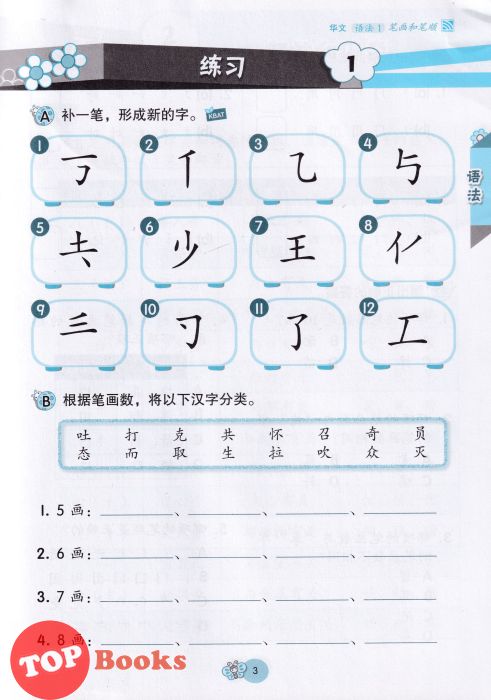 华文 语法1 笔画和笔顺
练习 1
A 补一笔，形成新的字。 KBAT
1 2 亻 3 乙 4 与
5 6 少 7 王 8
9 三 10 11 了 12 工
语法
B 根据笔画数，将以下汉字分类。
吐 打 克 共 怀 召 奇 员
态 而 取 生 拉 吹 众 灭
1. 5画：________、________、________、________
2. 6画：________、________、________、________
3. 7画：________、________、________、________
4. 8画：________、________、________、________
TOP Books
3